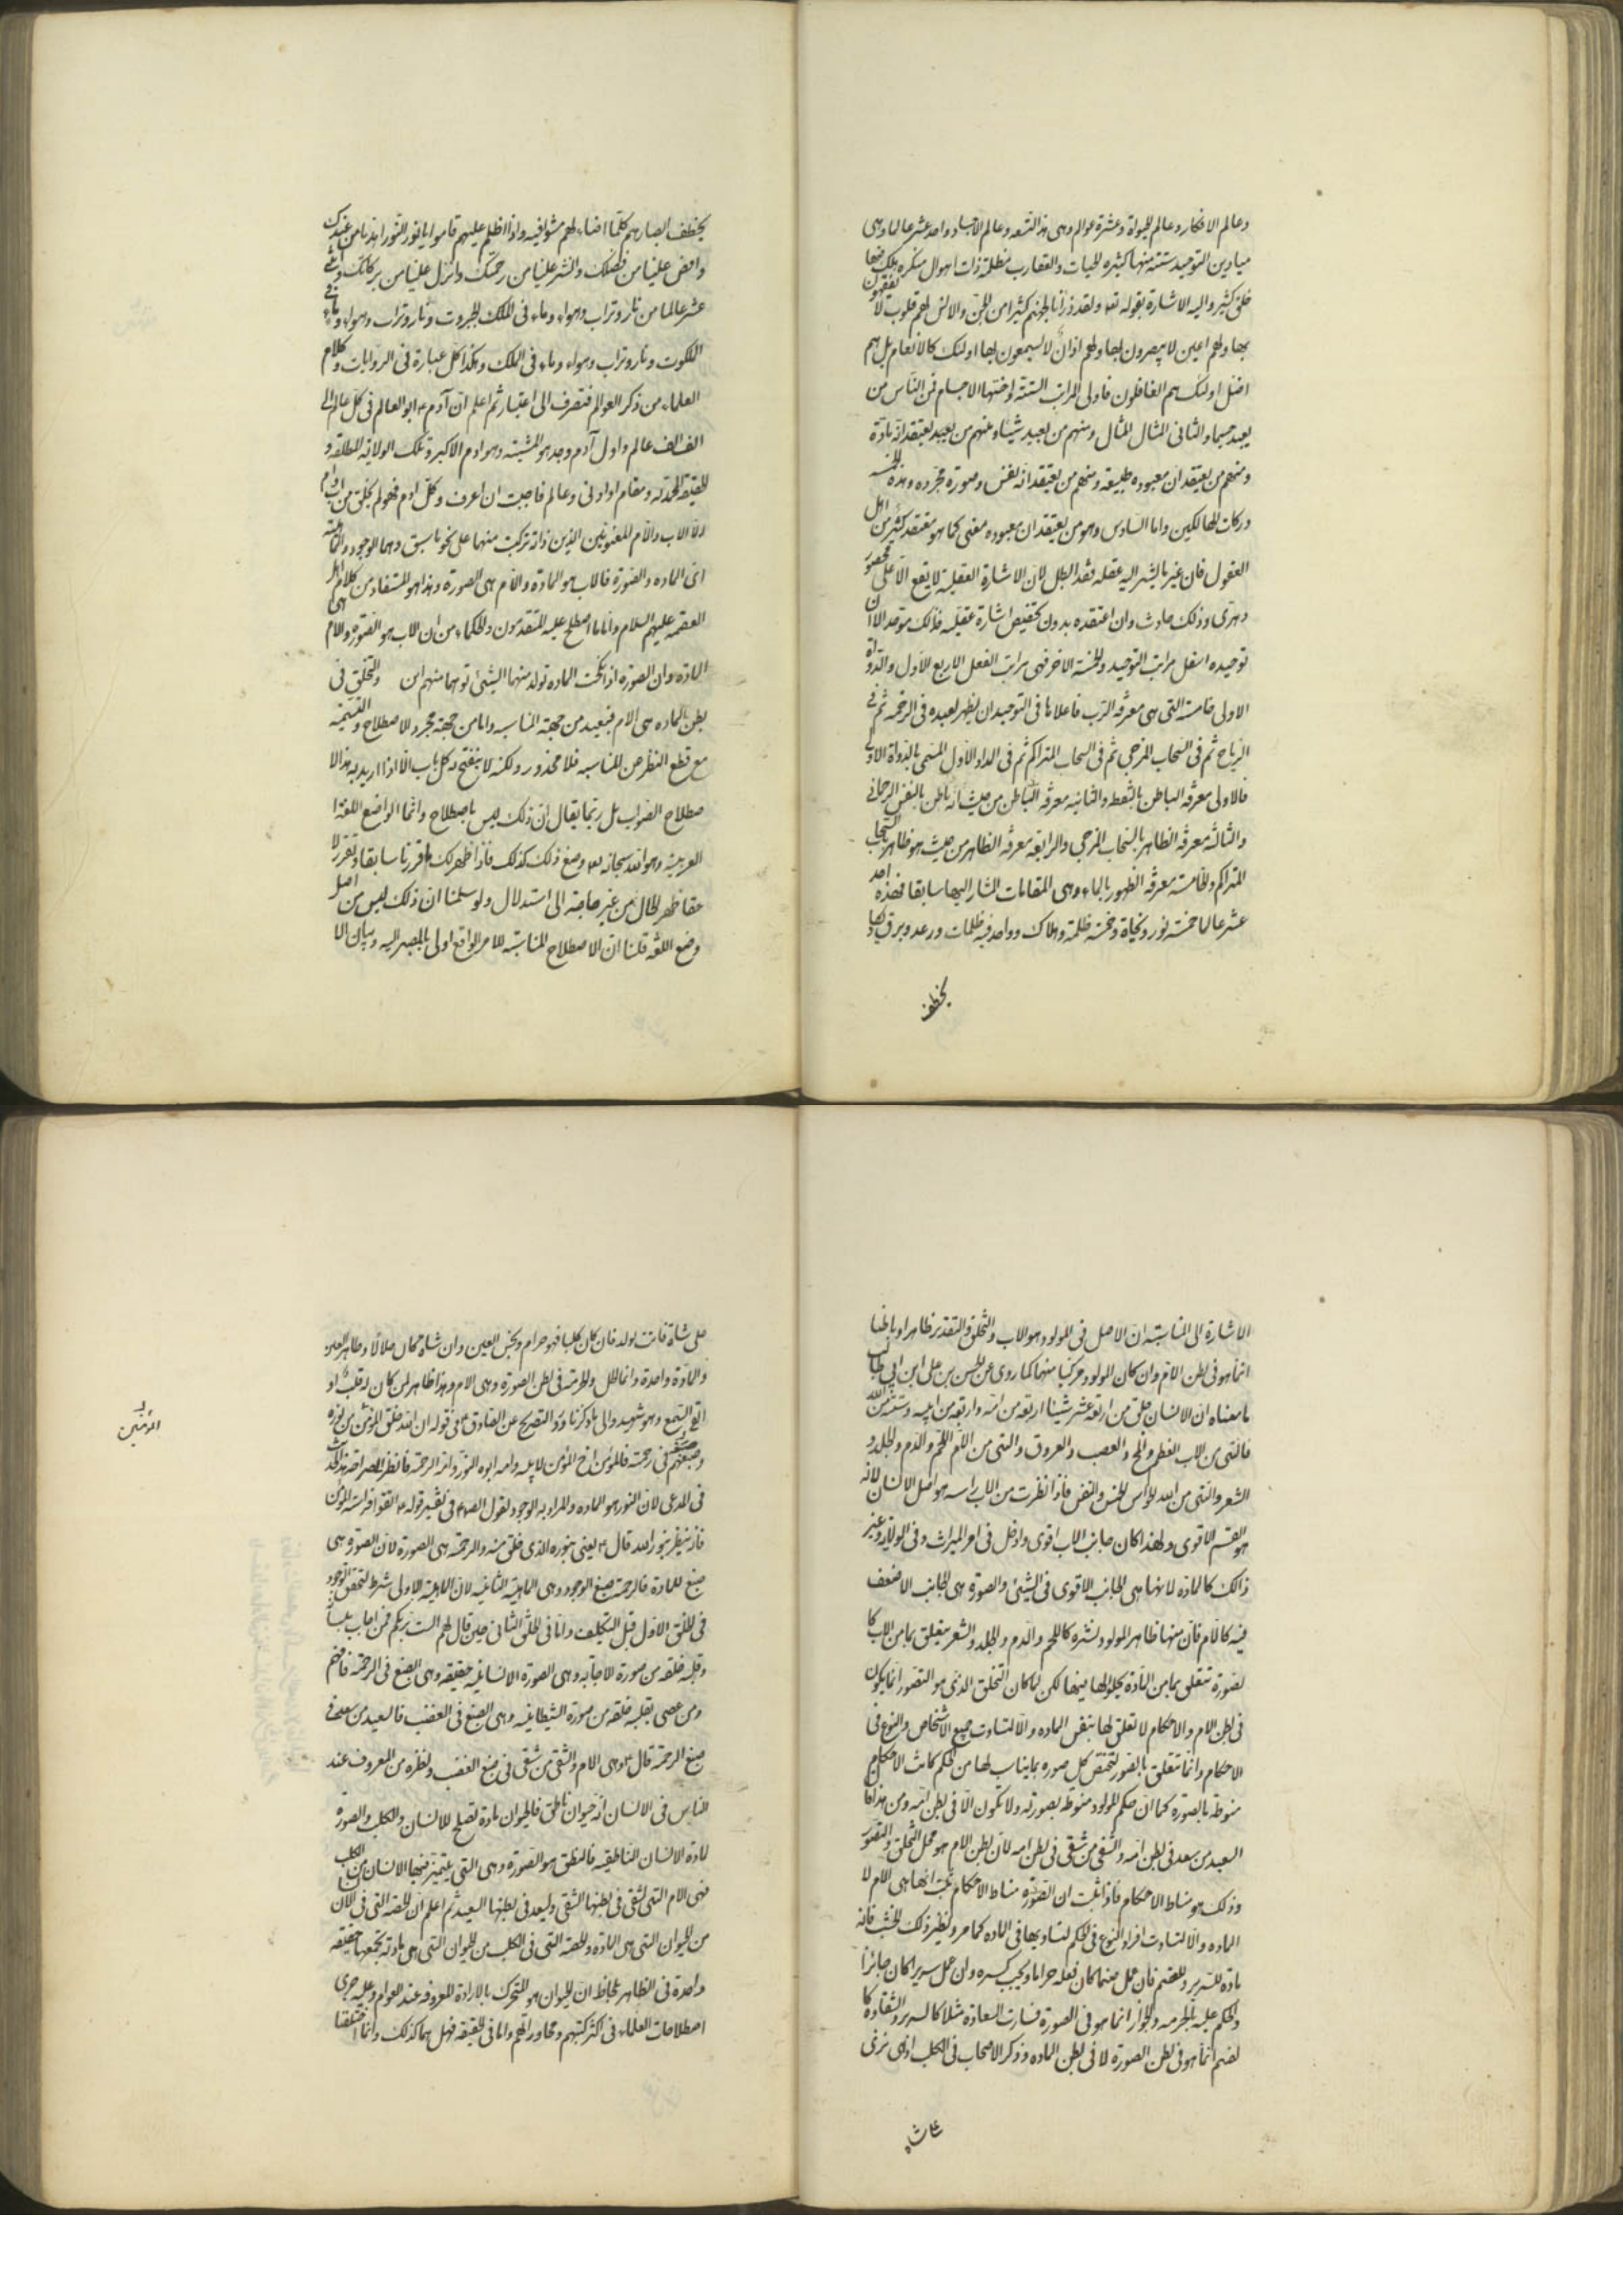 وعالم الافكار وعالم الحيوة وعشرة عوالم وهى هذه التسعه وعالم الاجساد واحد عشر عالما وهى
ميادين التوحيد ستة منها كثيره الحيات والعقارب مظلمة ذات اهوال منكره هلك فيها
خلق كثير واليه الاشارة بقوله تعه ولقد ذرأنا لجهنم كثيرا من الجن والانس لهم قلوب لا يفقهون
بها ولهم اعين لا يبصرون بها ولهم اذان لا يسمعون بها اولئك كالانعام بل هم
اضل اولئك هم الغافلون فاولى المراتب الستة واخسها الاجسام فمن الناس من
يعبد جسما والثانى المثال المثال ومنهم من يعبد شبحا ومنهم من يعبد يعتقد انه مادة
ومنهم من يعتقد ان معبوده طبيعة ومنهم من يعتقد انه نفس وصورة مجرده وهذه الخمسه
دركات الهالكين واما السادس وهو من يعتقد ان معبوده معنى كما هو معتقد كثير من اهل
العقول فان عنى ما يشير اليه عقله فقد ابطل لان الاشارة العقلية لا يقع الا على محصور
دهرى وذلك حادث وان اعتقده بدون تخصيص اشارة عقليه فذلك موحد الا ان
توحيده اسفل مراتب التوحيد والخمسة الاخر فهى مراتب الفعل الاربع الاول والدواة
الاولى خامسة التى هى معرفة الرب فاعلاها فى التوحيد ان يظهر لعبده فى الرحمه ثم فى
الرياح ثم فى السحاب المزجى ثم فى السحاب المتراكم ثم فى المداد الاول المسمى بالدواة الاولى
فالاولى معرفة الباطن بالنقطه والثانيه معرفة الباطن من حيث انه باطن بالنفس الرحمانى
والثالثه معرفة الظاهر بالسحاب المزجى والرابعه معرفة الظاهر من حيث هو ظاهر بالسحاب
المتراكم والخامسة معرفة الظهور بالماء وهى المقامات المشار اليها سابقا فهذه احد
عشر عالما خمسة نور ونجاة وخمسة ظلمة وهلاك وواحد فيه ظلمات ورعد وبرق يكاد
يخطف
يخطف ابصارهم كلما اضاء لهم مشوا فيه واذا اظلم عليهم قاموا يا نور النور اهدنا من عندك
وافض علينا من فضلك وانشر علينا من رحمتك وانزل علينا من بركاتك واثنى
عشر عالما من نار وتراب وهواء وماء فى الملك الجبروت ونار وتراب وهواء وماء فى
الملكوت ونار وتراب وهواء وماء فى الملك وهكذا كل عبارة فى الروايات وكلام
العلماء من ذكر العوالم فتصرف الى اعتبار ثم اعلم ان آدم ع ابو العالم فى كل عالم الى
الف الف عالم واول آدم وجد هو المشيته وهو ادم الاكبر وتلك الولاية المطلقه و
الحقيقة المحمدية ومقام او ادنى وعالم فاحببت ان اعرف وكل ادم فهو لم يخلق من اب وام
الا الاب والام المعنويين الذين ذاته تركبت منهما على نحو ما سبق وهما الوجود والماهية
اى الماده والصورة فالاب هو المادة والام هى الصورة وهذا هو المستفاد من كلام اهل
العصمه عليهم السلام واما ما اصطلح عليه المتقدمون والحكماء من ان الاب هو الصوره والام هى
المادة وان الصورة اذا نكحت الماده تولد منهما الشيئ توهما منهم ان والتخلق فى
بطن الماده هى الام فبعيد من جهة المناسبه واما من جهة مجرد الاصطلاح والتسمية
مع قطع النظر عن المناسبه فلا محذور ولكنه لا ينفتح به كل باب الا اذا اريد به هذا الا
صطلاح الصواب بل ربما يقال ان ذلك ليس باصطلاح وانما الواضع اللغة
العربية وهو الله سبحانه وضع ذلك كذلك فاذا ظهر لك ما قررنا سابقا وتقرر لا
حقا ظهر لك الحال من غير حاجة الى استدلال ولو سلمنا ان ذلك ليس من اصل
وضع اللغة قلنا ان الاصطلاح المناسبة للامر الواقع اولى بالمصير اليه وبيان الا
الاشارة الى المناسبة ان الاصل فى المولود هو الاب والتخلق والتقدير ظاهرا وباطنا
انما هو فى بطن الام وان كان المولود مركبا منهما كما روى عن الحسن بن على ابن ابى طالب
ما معناه ان الانسان خلق من اربعة عشر شيئا اربعة من امه واربعة من ابيه وستة من الله
فالتى من الاب العظم والمخ والعصب والعروق والتى من الام اللحم والدم والجلد و
الشعر والتى من الله الحواس الخمس والنفس فاذا نظرت من الاب راسه هو اصل الانسان لانه
هو القسم الاقوى ولهذا كان جانب الاب اقوى وادخل فى امر الميراث وفى الولايه وغير
ذالك كالمادة لانها هى الجانب الاقوى فى الشيئ والصورة هى الجانب الاضعف
فيه كالام فان منها ظاهر المولود وبشره كاللحم والدم والجلد والشعر يتعلق بما من الاب كا
لصورة تتعلق بما من المادة بحلولها فيها لكن لما كان التخلق الذى هو التصور انما يكون
فى بطن الام والاحكام لا تعلق لها بنفس الماده والا لتساوت جميع الاشخاص والنوع فى
الاحكام وانما تتعلق بالصور لتختص كل صوره بما يناسب لها من الحكم كانت الاحكام
منوطة بالصورة كما ان حكم المولود منوطة بصورته ولا تكون الا فى بطن امه ومن هذا كان
السعيد من سعد فى بطن امه والشقى من شقى فى بطن امه لان بطن الام هو محل التخلق والتصور
وذلك هو مناط الاحكام فاذا ثبت ان الصورة مناط الاحكام ثبت انها هى الام لا
الماده والا لتساوت افراد النوع فى الحكم لتساويها فى الماده كما مر ونظير ذلك الخشب فانه
مادة للسرير وللصنم فان عمل صنما كان فعله حراما ويجب كسره وان عمل سريرا كان جائزا
والحكم عليه بالحرمه والجواز انما هو فى الصورة فصارت السعادة مثلا كالسرير والشقاوة كا
لصنم انما هو فى بطن الصورة لا فى بطن الماده وذكر الاصحاب فى الكلب اذا نزى
على شاة
على شاة فاتت بولد فان كان كلبا فهو حرام ونجس العين وان شاة كان حلالا وطاهر العين
والمادة واحدة وانما الحل والحرمة فى بطن الصورة وهى الام وهذا ظاهر لمن كان له قلب او
القى السمع وهو شهيد والى ما ذكرنا ورد التصريح عن الصادق ع فى قوله ان الله خلق المؤمنين من نوره
وصبغهم فى رحمته فالمؤمن اخ المؤمن لابيه وامه ابوه النور وامه الرحمة فانظر الى صراحة هذا الحديث
فى المدعى لان النور هو الماده والمراد به الوجود لقول الصه ع فى تفسير قوله ع اتقوا فراسة المؤمن
فانه ينظر بنور الله قال ع يعنى بنوره الذى خلق منه والرحمة هى الصورة لان الصورة هى
صبغ للمادة فالرحمة صبغ الوجود وهى الماهية الثانية لان الماهية الاولى شرط لتحقق الوجود
فى الخلق الاول قبل التكليف واما فى الخلق الثانى حين قال لهم الست بربكم فمن اجاب بلسانه
وقلبه خلقه من صورة الاجابه وهى الصورة الانسانية حقيقه وهى الصبغ فى الرحمة فافهم
ومن عصى بقلبه خلقه من صورة الشيطانية وهى الصبغ فى الغضب فالسعيد من سعد فى
صبغ الرحمة قال ع وهى الام والشقى من شقى فى صبغ الغضب ونظيره من المعروف عند
الناس فى الانسان انه حيوان ناطق فالحيوان مادة تصلح للانسان والكلب والصورة
لمادة الانسان الناطقيه فالنطق هو الصورة وهى التى يتميز فيها الانسان من الكلب
فهى الام التى يشقى فى بطنها الشقى ويسعد فى بطنها السعيد ثم اعلم ان الحصة التى فى الانسان
من الحيوان التى هى المادة والحصه التى فى الكلب من الحيوان التى هى مادته تجمعهما حقيقه
واحدة فى الظاهر بلحاظ ان الحيوان هو المتحرك بالارادة المعروفه عند العوام وعليه جرى
اصطلاحات العلماء فى اكثر كتبهم ومحاوراتهم واما فى الحقيقه فهل هما كذلك وانما اختلفتا